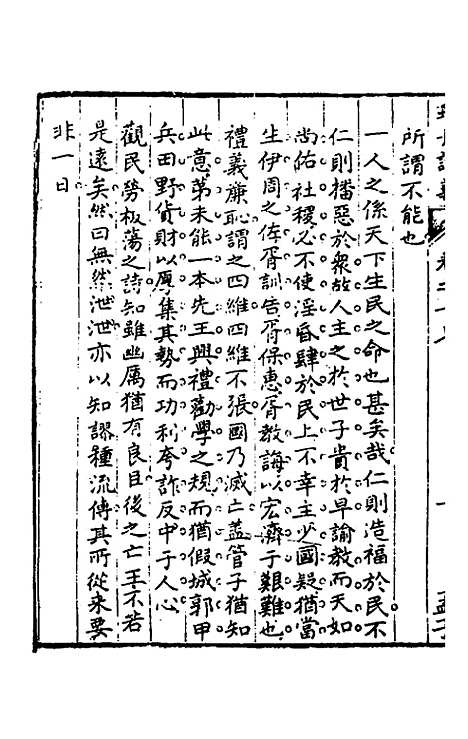 所謂不能也
一人之係天下生民之命也甚矣哉仁則造福於民不
仁則播惡於衆故人主之於世子貴於早諭教而天如
尚佑社稷必不使淫昏肆於民上不幸主少國疑猶當
生伊周之佐胥訓告胥保惠胥教誨以宏濟于艱難也
禮義廉恥謂之四維四維不張國乃滅亡蓋管子猶知
此意第未能一本先王興禮勸學之規而猶假城郭甲
兵田野貨財以厚集其勢而功利夸詐反中于人心
觀民勞板蕩之詩知雖幽厲猶有良臣後之亡王不若
是遠矣然曰無然泄泄亦以知謬種流傳其所從來要
非一日